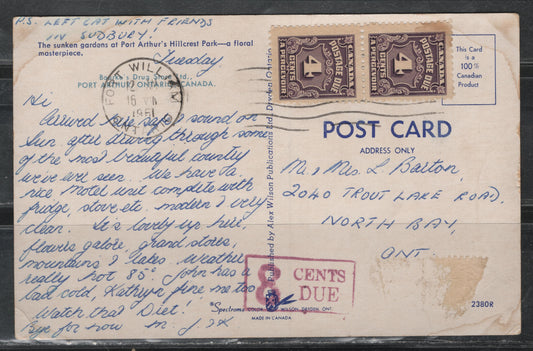 P.S. LEFT CAT WITH FRIENDS
IN SUDBURY!
The sunken gardens at Port Arthur's Hillcrest Park—a floral
masterpiece.
Tuesday
Drug Store Ltd.,
PORT ARTHUR ONTARIO, CANADA.
Hi
Arrived here safe & sound on
Sun. after driving through some
of the most beautiful country
we've ever seen. We have a
nice motel unit complete with
fridge, stove etc. modern & very
clean. It's lovely up here,
flowers galore, grand stores,
mountains & lakes. Weather
really hot 85° John has a
bad cold, Kathryn fine me too
Watch that Diet!
Bye for now
FORT WILLIAM
1961
POSTAGE DUE
4
CENTS
A PERCEVOIR
POSTAGE DUE
4
CENTS
A PERCEVOIR
This Card
is a
100%
Canadian
Product
Published by Alex Wilson Publications Ltd., Dryden, Ontario
POST CARD
ADDRESS ONLY
Mr & Mrs. L. Barton,
2040 TROUT LAKE ROAD.
NORTH BAY,
ONT.
8 CENTS
DUE
Spectrome COLOR WILSON, DRYDEN, ONT.
MADE IN CANADA
2380R